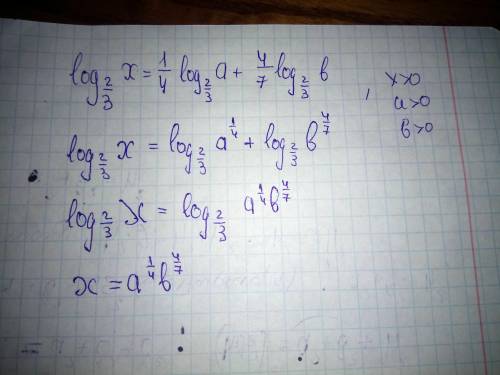 log_{2/3} x = 1/4 log_{2/3} a + 4/7 log_{2/3} b , x>0
a>0
b>0
log_{2/3} x = log_{2/3} a^{1/4} + log_{2/3} b^{4/7}
log_{2/3} x = log_{2/3} a^{1/4} b^{4/7}
x = a^{1/4} b^{4/7}